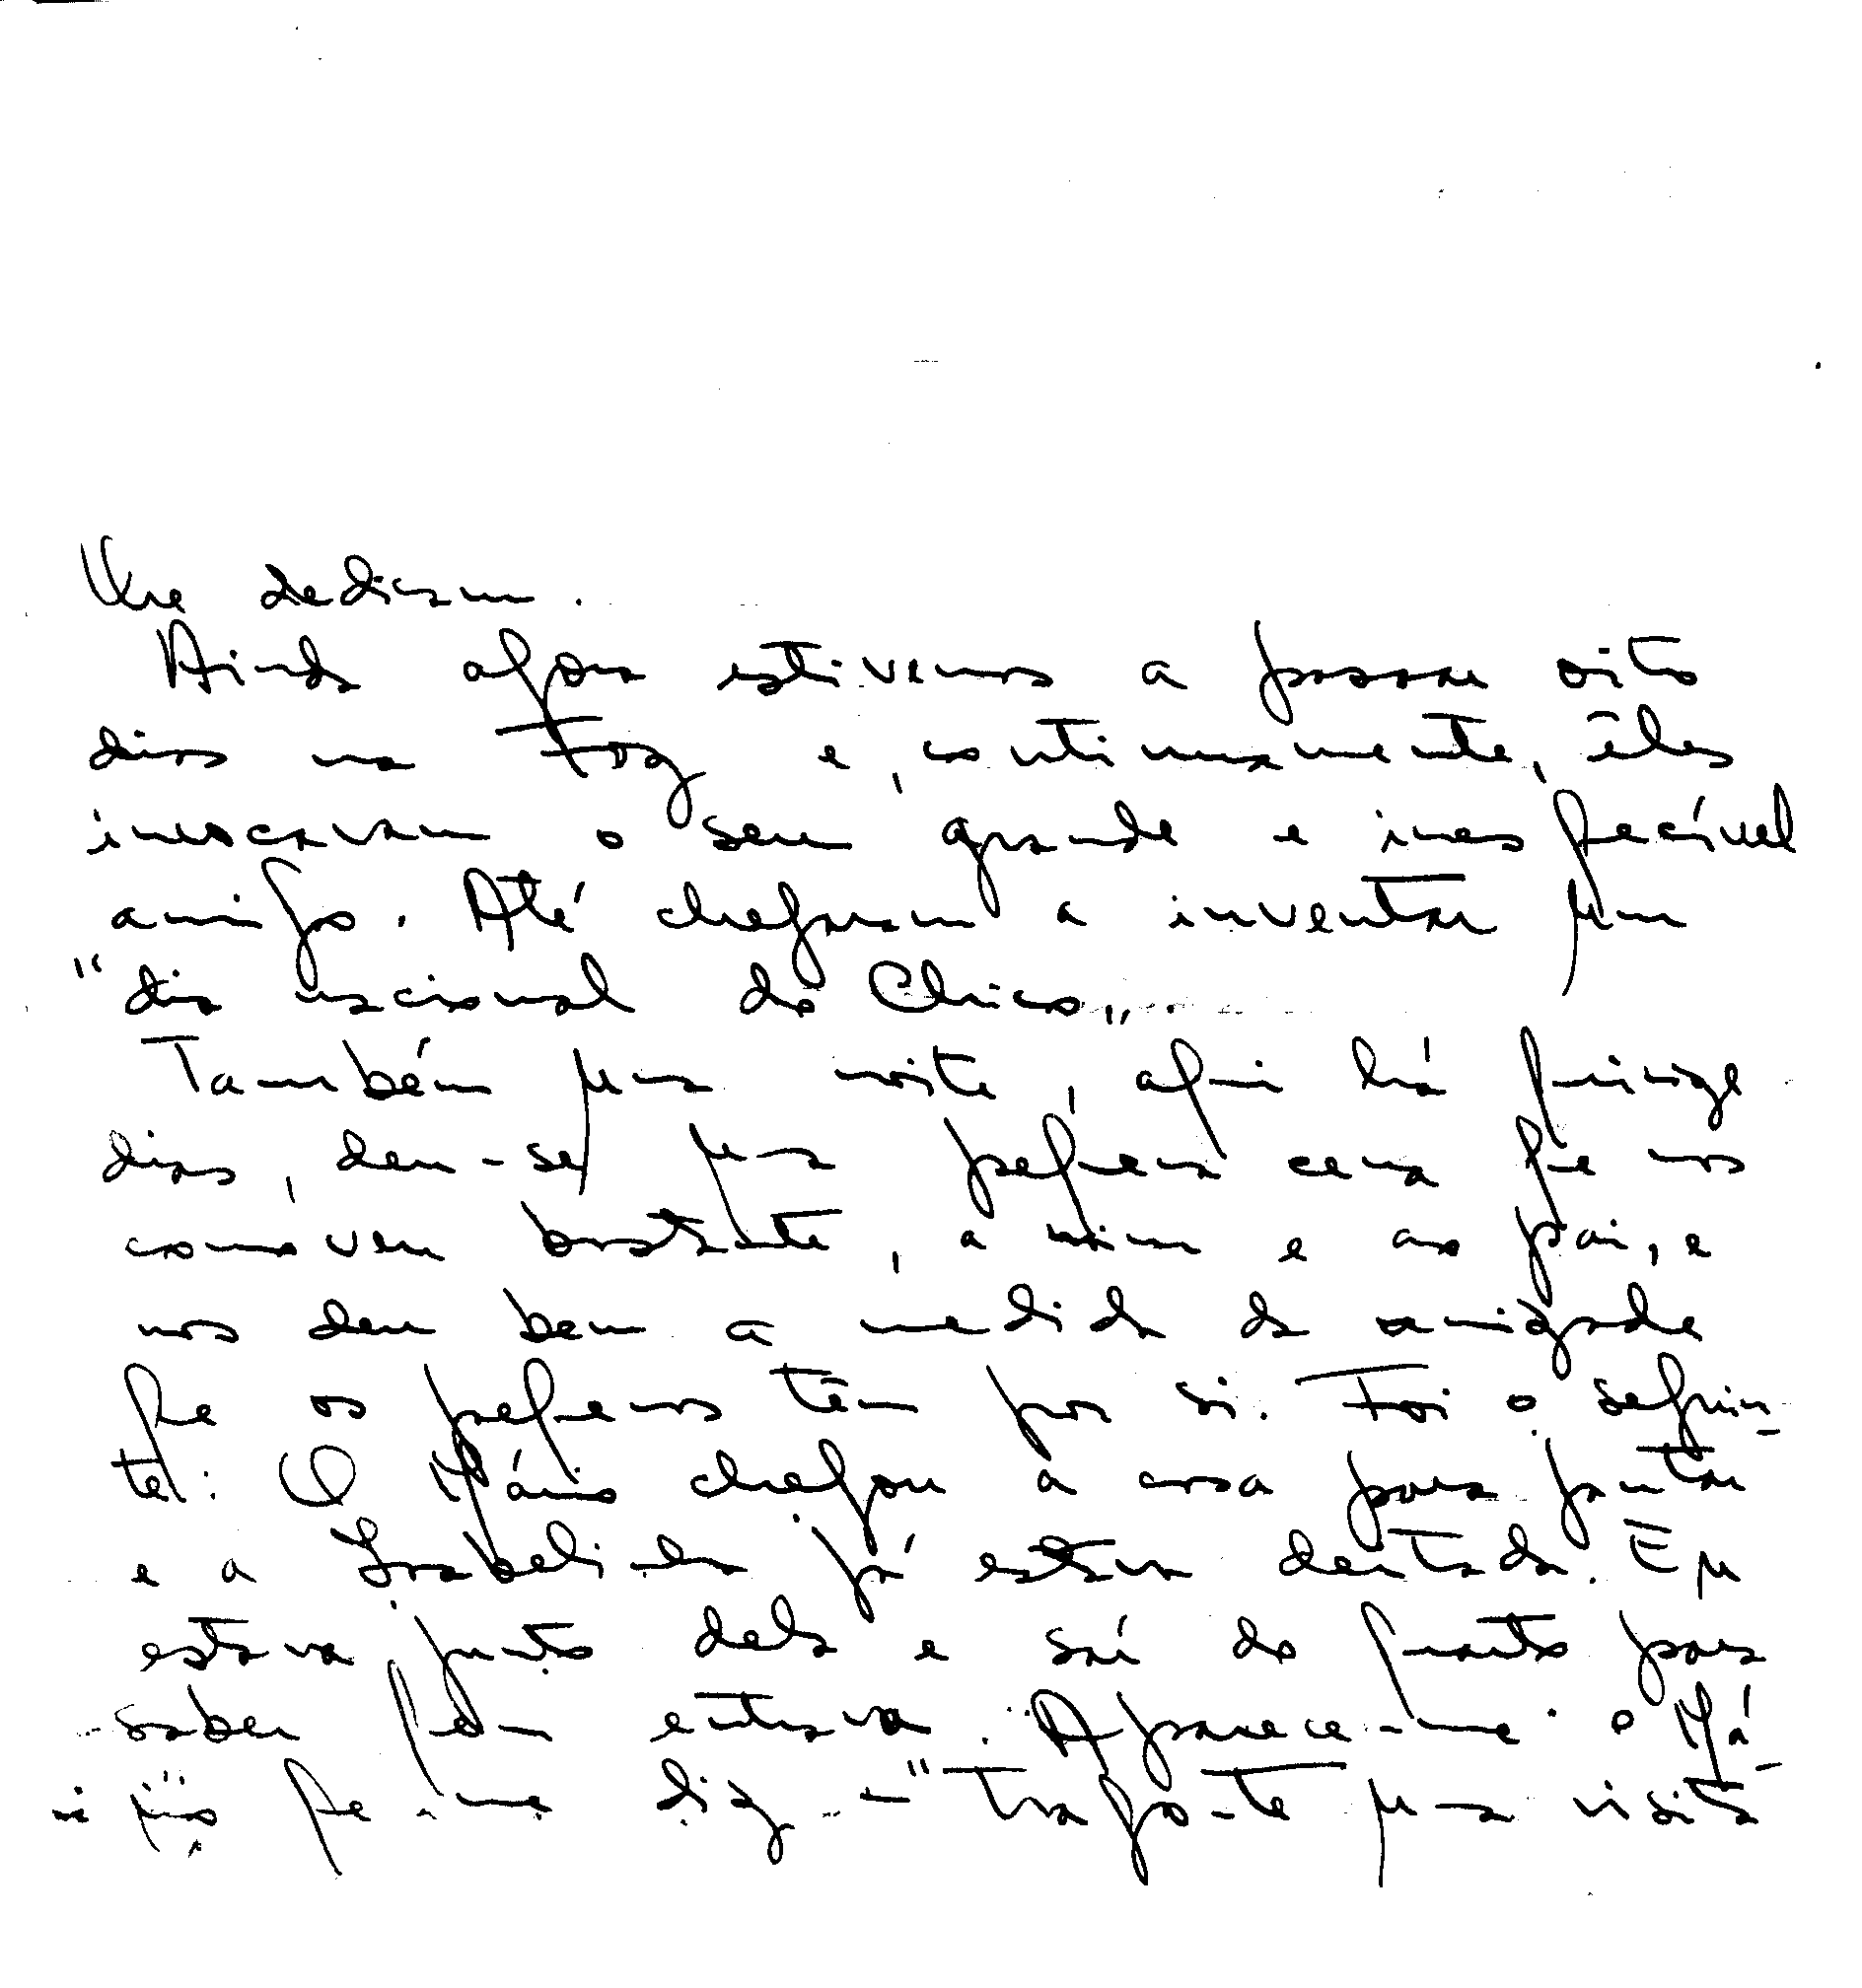 lhe dedicam.
Ainda agora estivemos a passar oito
dias na Foz e, continuamente, êles
invocavam o seu grande e inesquecível
amigo. Até chegaram a inventar um
"dia nacional do Chico".
Também uma noite, aqui há quinze
dias, deu-se uma pequena cena que nos
comoveu bastante, a mim e ao pai, e
nos deu bem a medida da amizade
que os pequenos têm por si. Foi o seguin-
te: O Mário chegou a casa para jantar
e a Isabelinha já estava deitada. Eu
estava junto dela e saí do quarto para
saber quem entrava. Aparece-me o Má-
rio que me diz -"Trago-te uma visita